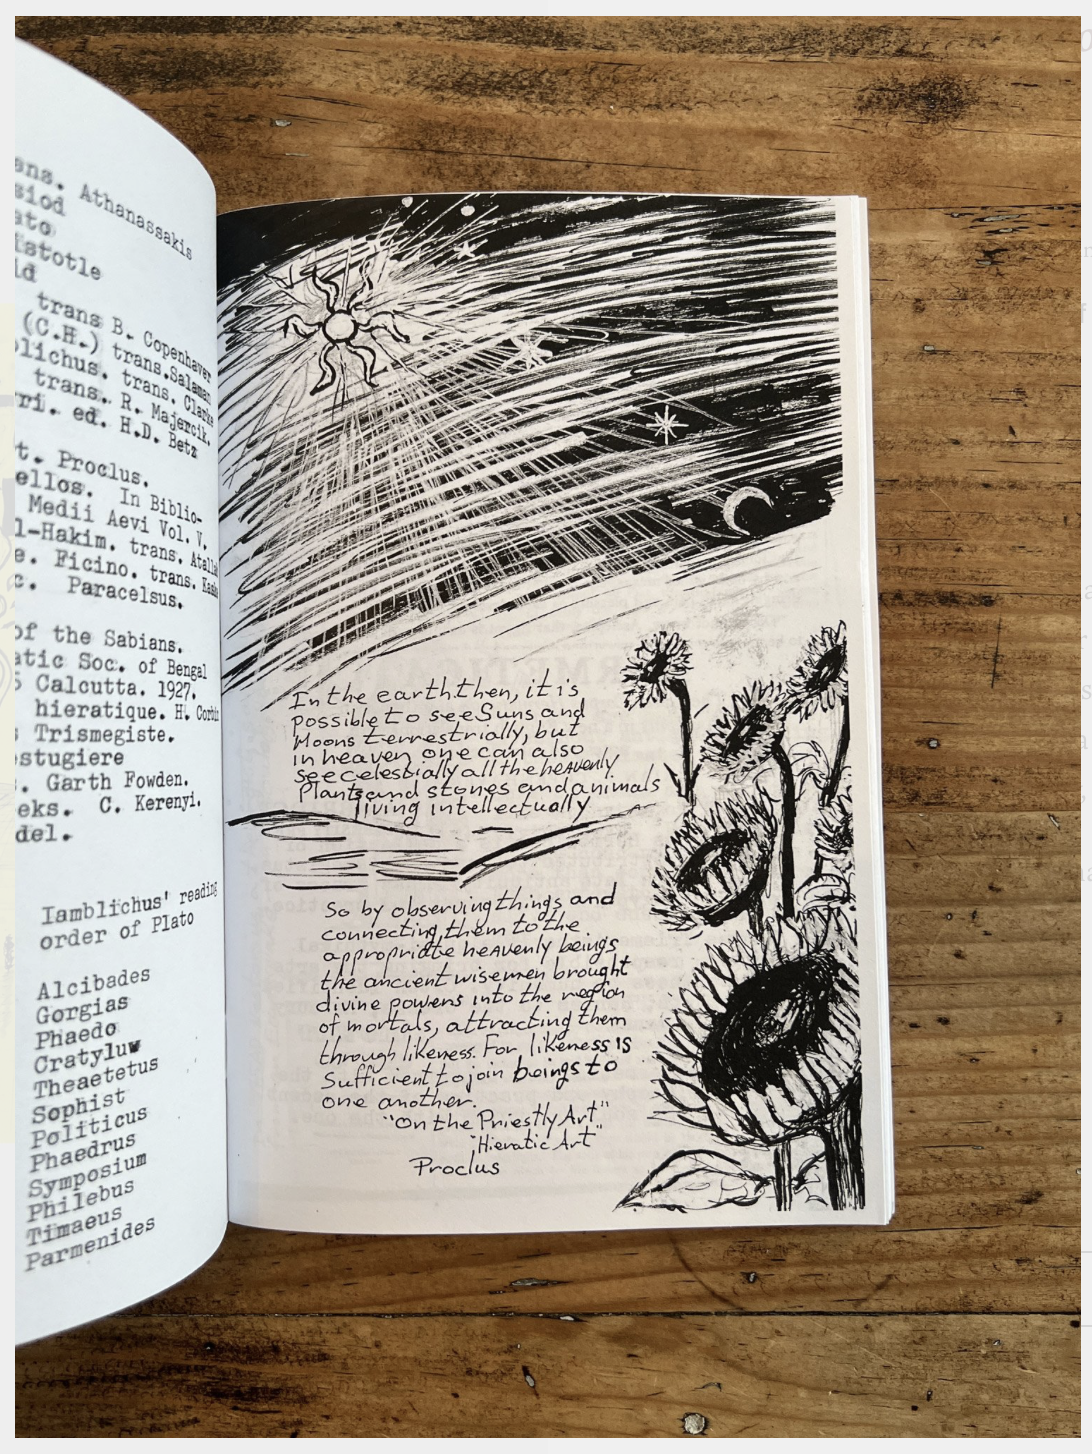 Athanassakis
trans B. Copenhaver
(C.H.) trans.Salaman
trans. Clarke
trans. R. Majercik.
ed. H.D. Betz
Proclus.
In Biblio-
Medii Aevi Vol. V.
trans.
Ficino. trans.
Paracelsus.
of the Sabians.
Soc. of Bengal
Calcutta. 1927.
hieratique. H. Corbin
Trismegiste.
Garth Fowden.
C. Kerenyi.
Iamblichus' reading
order of Plato
Alcibades
Gorgias
Phaedo
Cratyluw
Theaetetus
Sophist
Politicus
Phaedrus
Symposium
Philebus
Timaeus
Parmenides
In the earth, then, it is
possible to see Suns and
Moons terrestrially, but
in heaven one can also
see celestially all the heavenly
Plants and stones and animals
living intellectually
So by observing things and
connecting them to the
appropriate heavenly beings
the ancient wisemen brought
divine powers into the region
of mortals, attracting them
through likeness. For likeness is
Sufficient to join beings to
one another.
"On the Priestly Art"
"Hieratic Art"
Proclus